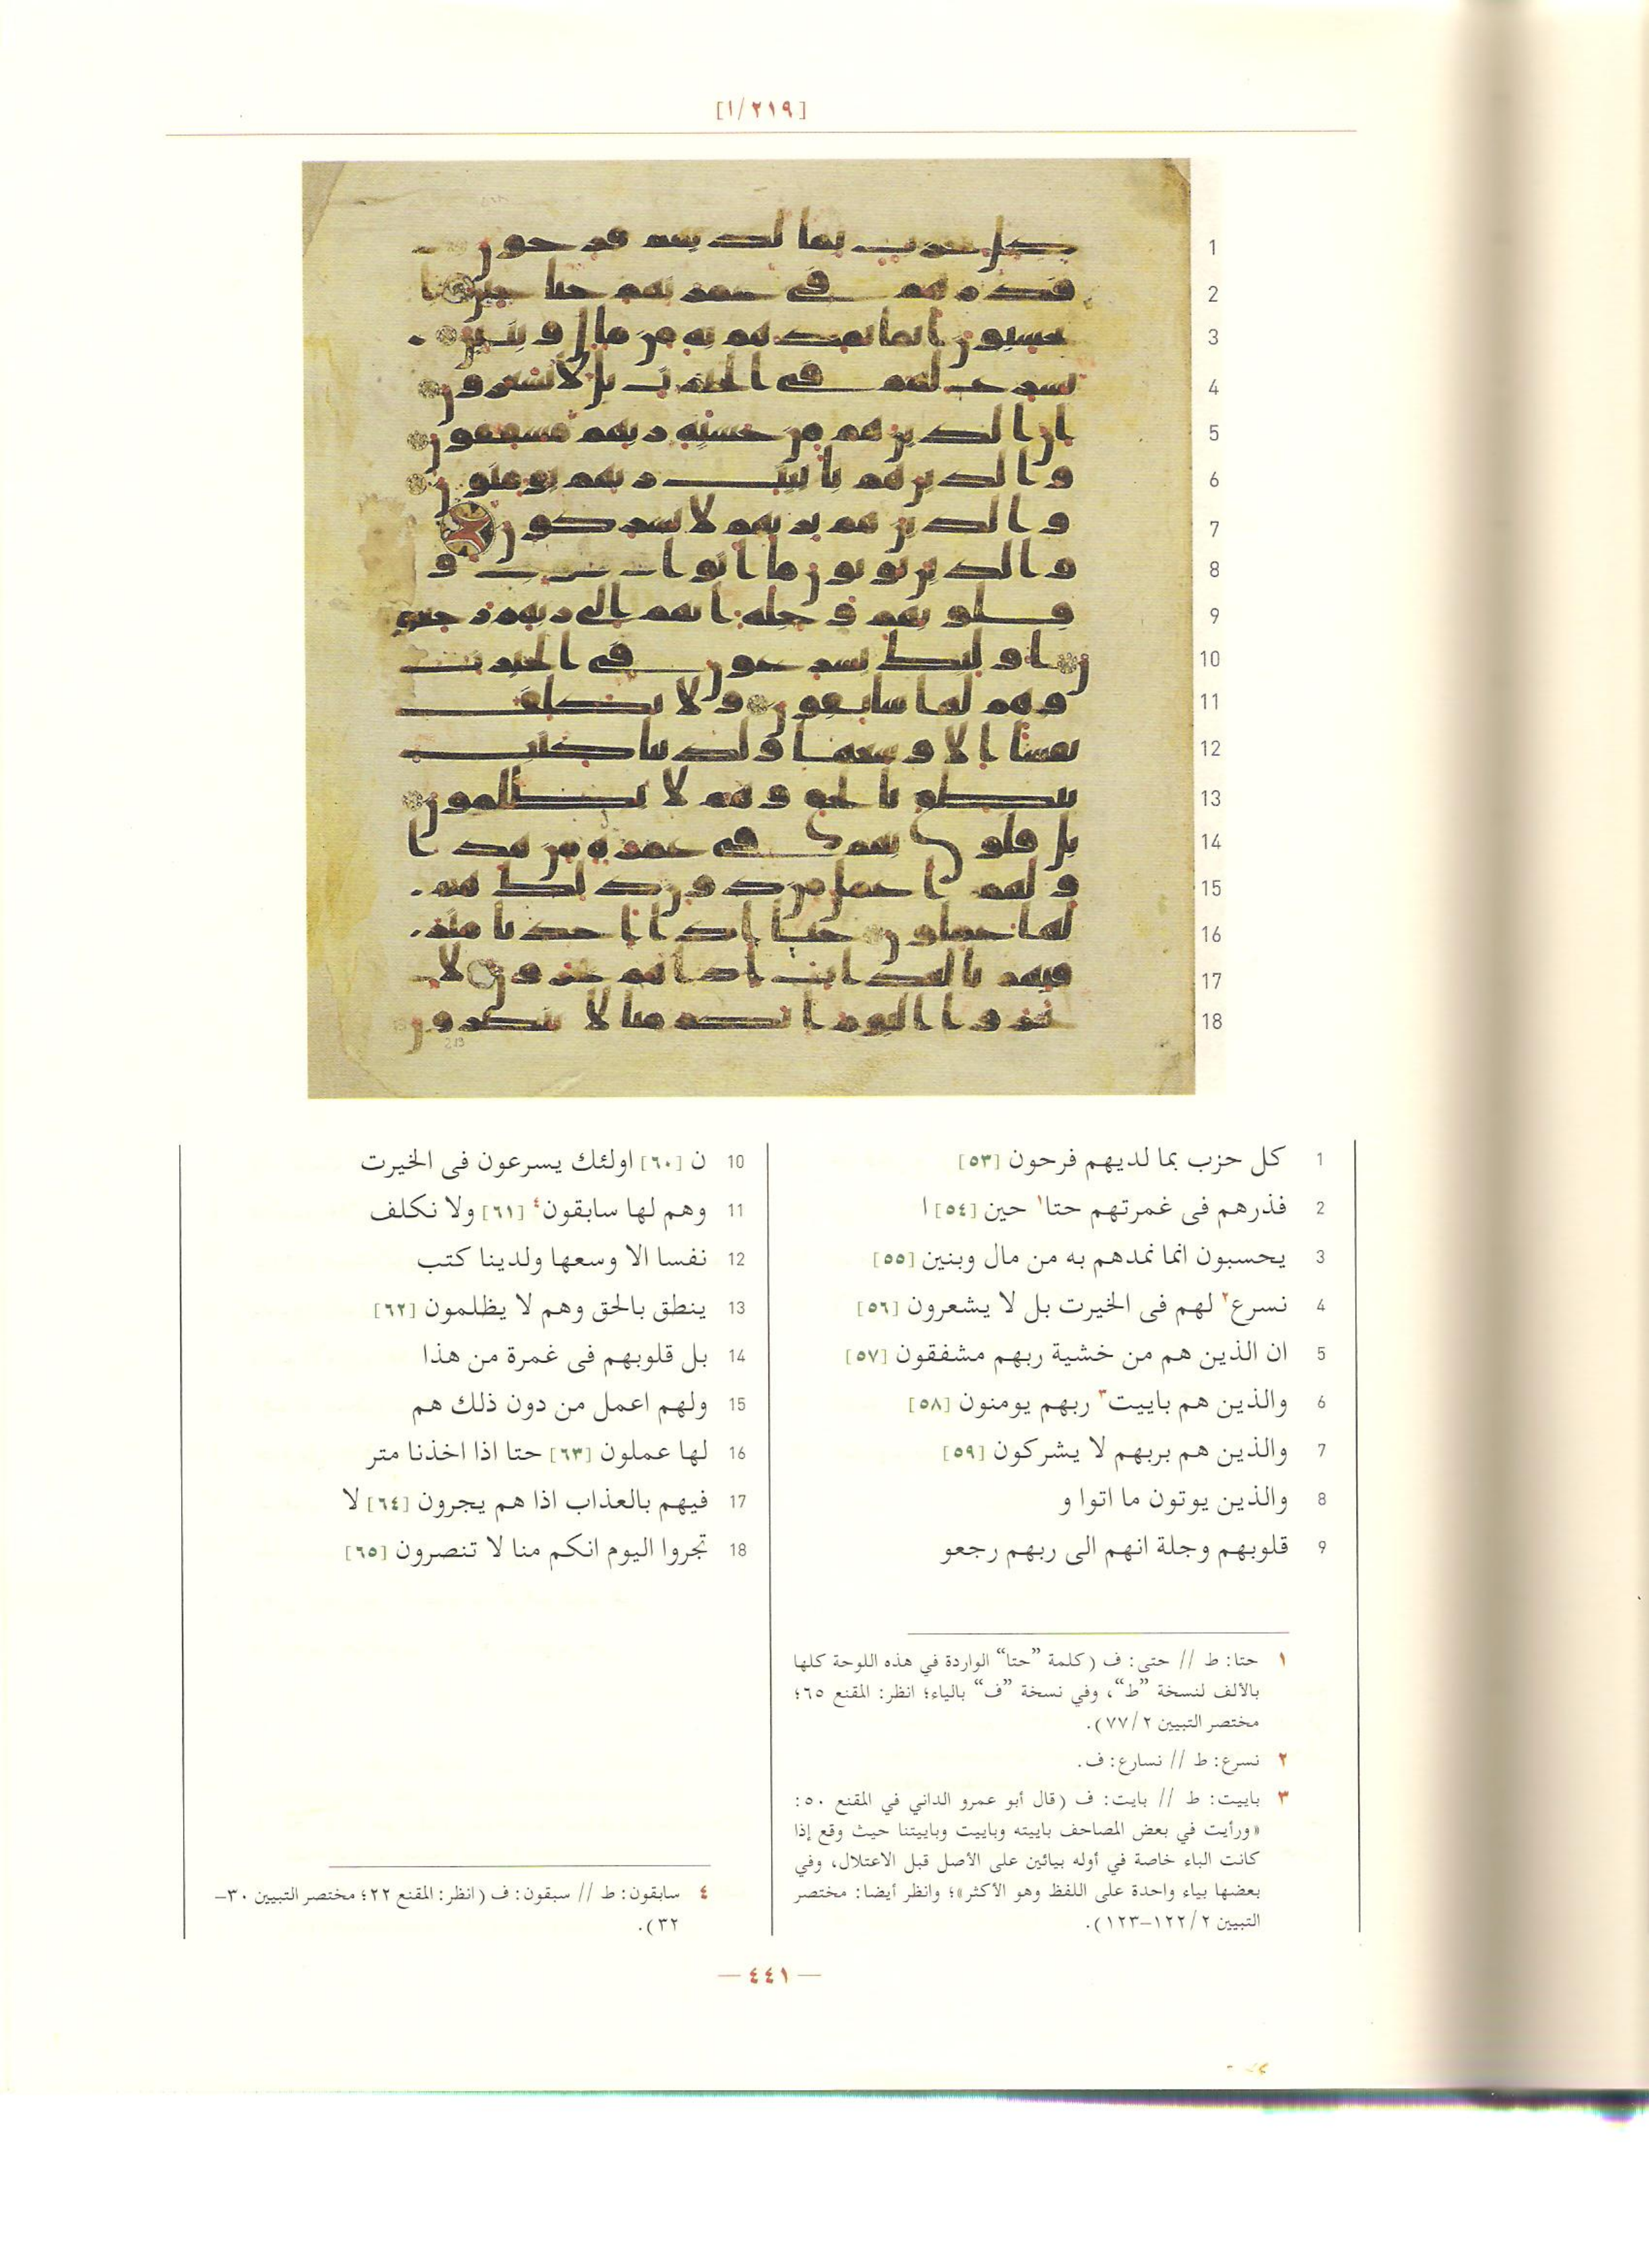 [٢١٩/١]
1 كل حزب بما لديهم فرحون [٥٣]
2 فذرهم فى غمرتهم حتا١ حين [٥٤] ا
3 يحسبون انما نمدهم به من مال وبنين [٥٥]
4 نسرع٢ لهم فى الخيرت بل لا يشعرون [٥٦]
5 ان الذين هم من خشية ربهم مشفقون [٥٧]
6 والذين هم باييت٣ ربهم يومنون [٥٨]
7 والذين هم بربهم لا يشركون [٥٩]
8 والذين يوتون ما اتوا و
9 قلوبهم وجلة انهم الى ربهم رجعو
10 ن [٦٠] اولئك يسرعون فى الخيرت
11 وهم لها سابقون٤ [٦١] ولا نكلف
12 نفسا الا وسعها ولدينا كتب
13 ينطق بالحق وهم لا يظلمون [٦٢]
14 بل قلوبهم فى غمرة من هذا
15 ولهم اعمل من دون ذلك هم
16 لها عملون [٦٣] حتا اذا اخذنا متر
17 فيهم بالعذاب اذا هم يجرون [٦٤] لا
18 تجروا اليوم انكم منا لا تنصرون [٦٥]
١ حتا: ط // حتى: ف (كلمة ”حتا“ الواردة في هذه اللوحة كلها
بالألف لنسخة ”ط“، وفي نسخة ”ف“ بالياء؛ انظر: المقنع ٦٥؛
مختصر التبيين ٧٧/٢).
٢ نسرع: ط // نسارع: ف.
٣ باييت: ط // بايت: ف (قال أبو عمرو الداني في المقنع ٥٠:
«ورأيت في بعض المصاحف باييته وباييت وباييتنا حيث وقع إذا
كانت الباء خاصة في أوله بيائين على الأصل قبل الاعتلال، وفي
بعضها بياء واحدة على اللفظ وهو الأكثر»؛ وانظر أيضا: مختصر
التبيين ١٢٢/٢–١٢٣).
٤ سابقون: ط // سبقون: ف (انظر: المقنع ٢٢؛ مختصر التبيين ٣٠–
٣٢).
— ٤٤١ —